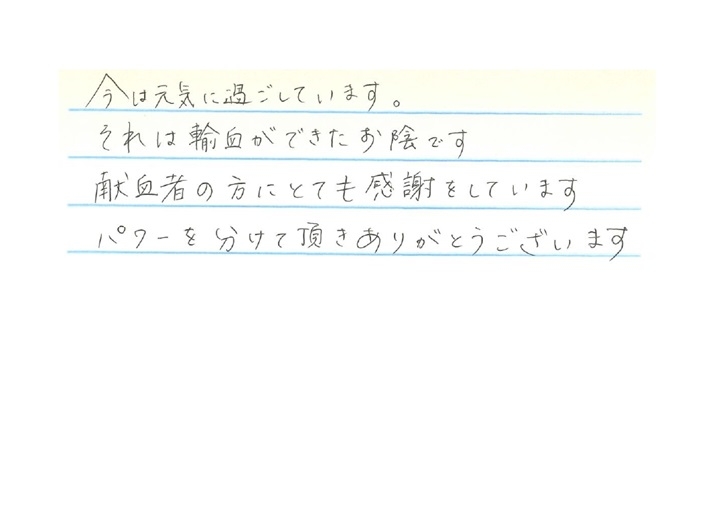 今は元気に過ごしています。
それは輸血ができたお陰です
献血者の方にとても感謝をしています
パワーを分けて頂きありがとうございます